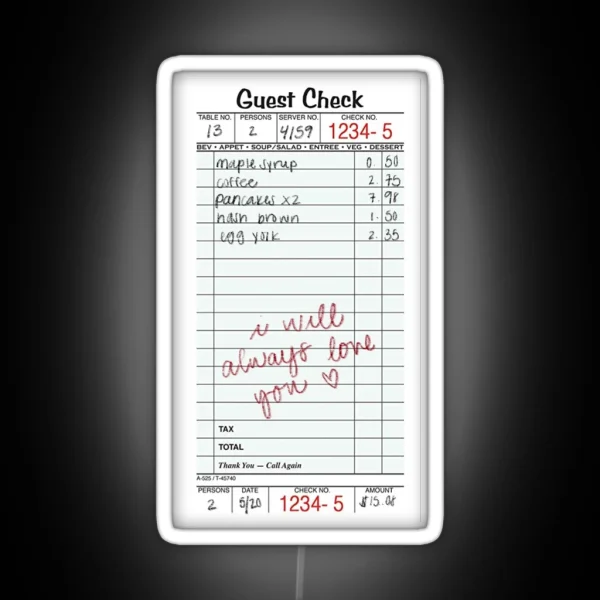 Guest Check
TABLE NO. PERSONS SERVER NO. CHECK NO.
13 2 4159 1234- 5
BEV • APPET • SOUP/SALAD • ENTREE • VEG • DESSERT
maple syrup 0. 50
coffee 2. 75
pancakes x2 7. 98
hash brown 1. 50
egg yolk 2. 35
i will
always love
you ♡
TAX
TOTAL
Thank You — Call Again
A-525 / T-45740
PERSONS DATE CHECK NO. AMOUNT
2 5/20 1234- 5 $15.08